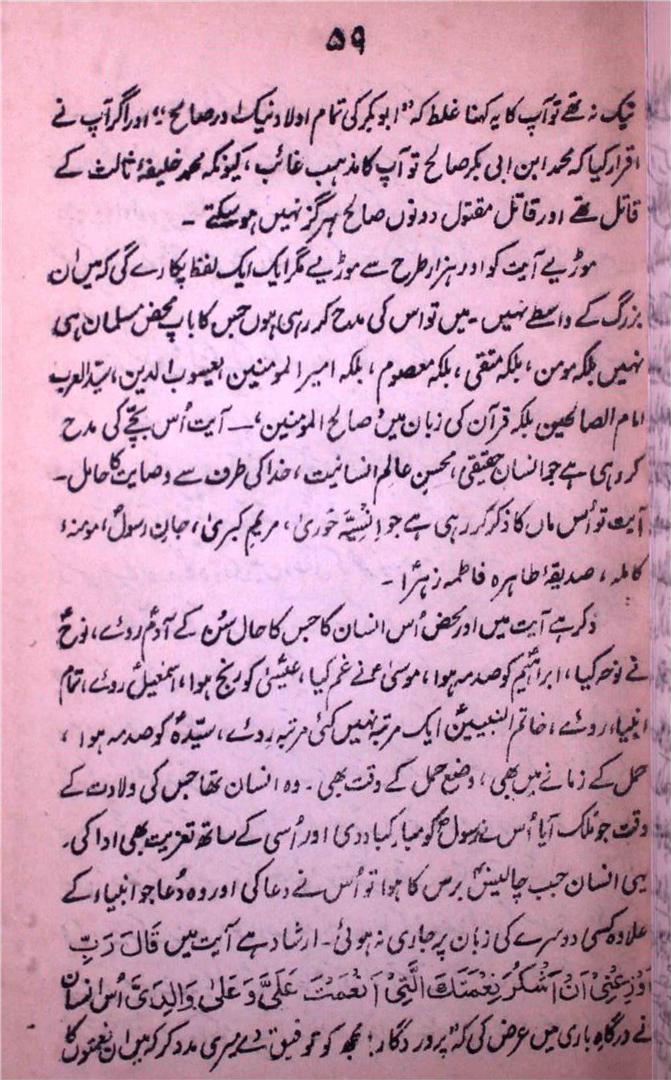 ۵۹
نیک نہ تھے تو آپ کا یہ کہنا غلط کہ "ابوبکر کی تمام اولاد نیک اور صالح"؛ اور اگر آپ نے
اقرار کیا کہ محمد ابن ابی بکر صالح تو آپ کا مذہب غائب، کیونکہ محمد خلیفۂ ثالث کے
قاتل تھے اور قاتل مقتول دونوں صالح ہرگز نہیں ہو سکتے۔
موڑیے آیت کو اور ہزار طرح سے موڑیے مگر ایک ایک لفظ پکارے گی کہ میں ان
بزرگ کے واسطے نہیں۔ میں تو اس کی مدح کر رہی ہوں جس کا باپ محض مسلمان ہی
نہیں بلکہ مومن، بلکہ متقی، بلکہ معصوم، بلکہ امیر المومنین یعسوب الدین، سید العرب
امام الصالحین بلکہ قرآن کی زبان میں "صالح المومنین"۔ آیت اُس بچّے کی مدح
کر رہی ہے جو انسان حقیقی، محسن عالم انسانیت، خدا کی طرف سے وصایت کا حامل۔
آیت تو اُس ماں کا ذکر کر رہی ہے جو انسیّہ حوریٰ، مریم کبریٰ، جان رسولؐ، مومنہ
کاملہ، صدیقۂ طاہرہ فاطمہ زہراؑ۔
ذکر ہے آیت میں اور محض اُس انسان کا جس کا حال سُن کے آدمؑ روئے، نوحؑ
نے نوحہ کیا، ابراہیمؑ کو صدمہ ہوا، موسیٰؑ نے غم کیا، عیسیٰؑ کو رنج ہوا، اسمٰعیلؑ روئے، تمام
انبیاء روئے، خاتم النبیینؐ ایک مرتبہ نہیں کئی مرتبہ روئے، سیّدہؑ کو صدمہ ہوا،
حمل کے زمانے میں بھی، وضع حمل کے وقت بھی۔ وہ انسان تھا جس کی ولادت کے
وقت جو ملک آیا اُس نے رسولؐ کو مبارکباد دی اور اُسی کے ساتھ تعزیت بھی ادا کی۔
یہی انسان جب چالیس برس کا ہوا تو اُس نے دعا کی اور وہ دُعا جو انبیاء کے
علاوہ کسی دوسرے کی زبان پر جاری نہ ہوئی۔ ارشاد ہے آیت میں قَالَ رَبِّ
اَوْزِعْنِیْ اَنْ اَشْکُرَ نِعْمَتَکَ الَّتِیْ اَنْعَمْتَ عَلَیَّ وَ عَلٰی وَالِدَیَّ اُس انسان
نے درگاہِ باری میں عرض کی کہ "پروردگار! مجھ کو توفیق دے میری مدد کر کہ میں ان نعمتوں کا